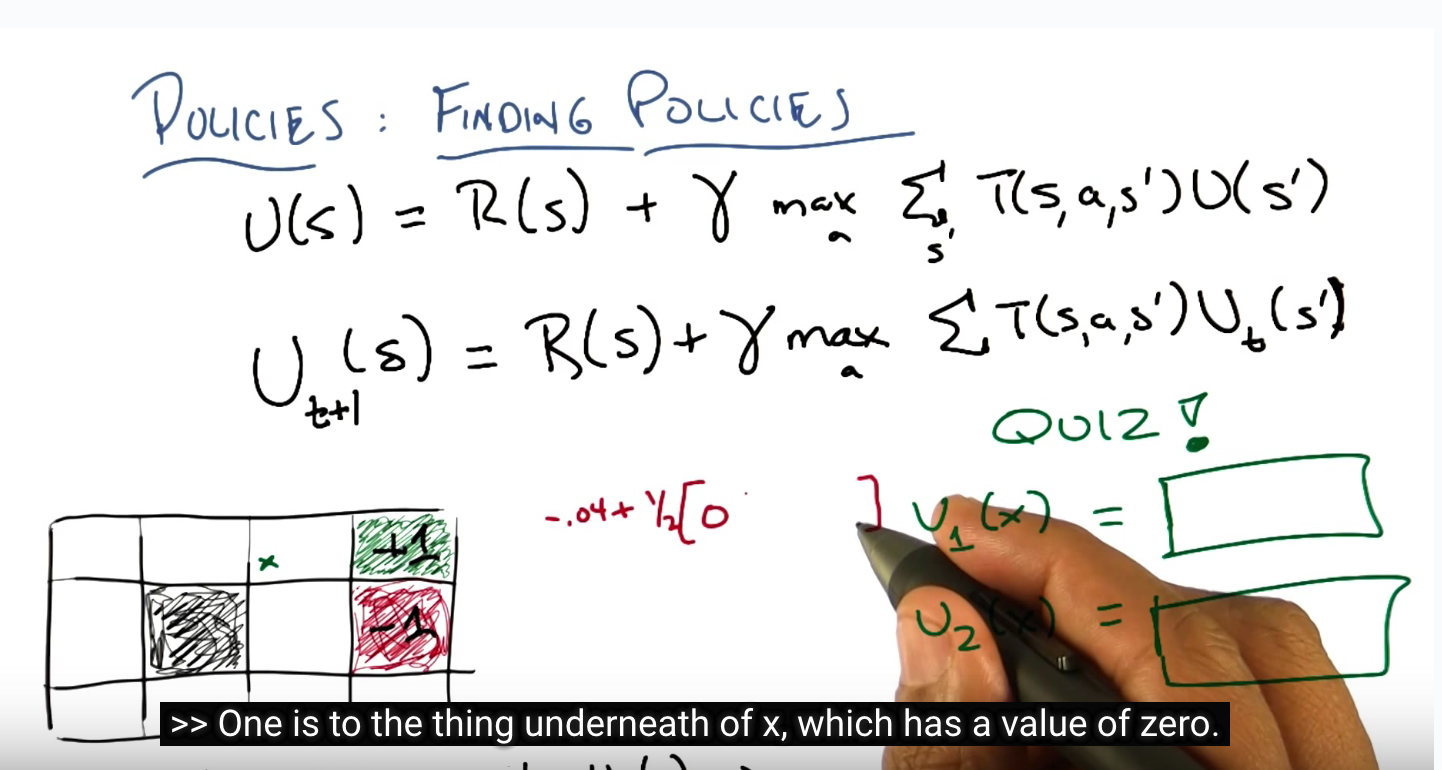 POLICIES : FINDING POLICIES
U(s) = R(s) + γ max_a Σ_s' T(s,a,s')U(s')
U_t+1(s) = R(s) + γ max_a Σ T(s,a,s')U_t(s')
QUIZ!
-.04 + 1/2[0 ] U_1(x) =
x +1
-1
U_2(x) =
>> One is to the thing underneath of x, which has a value of zero.